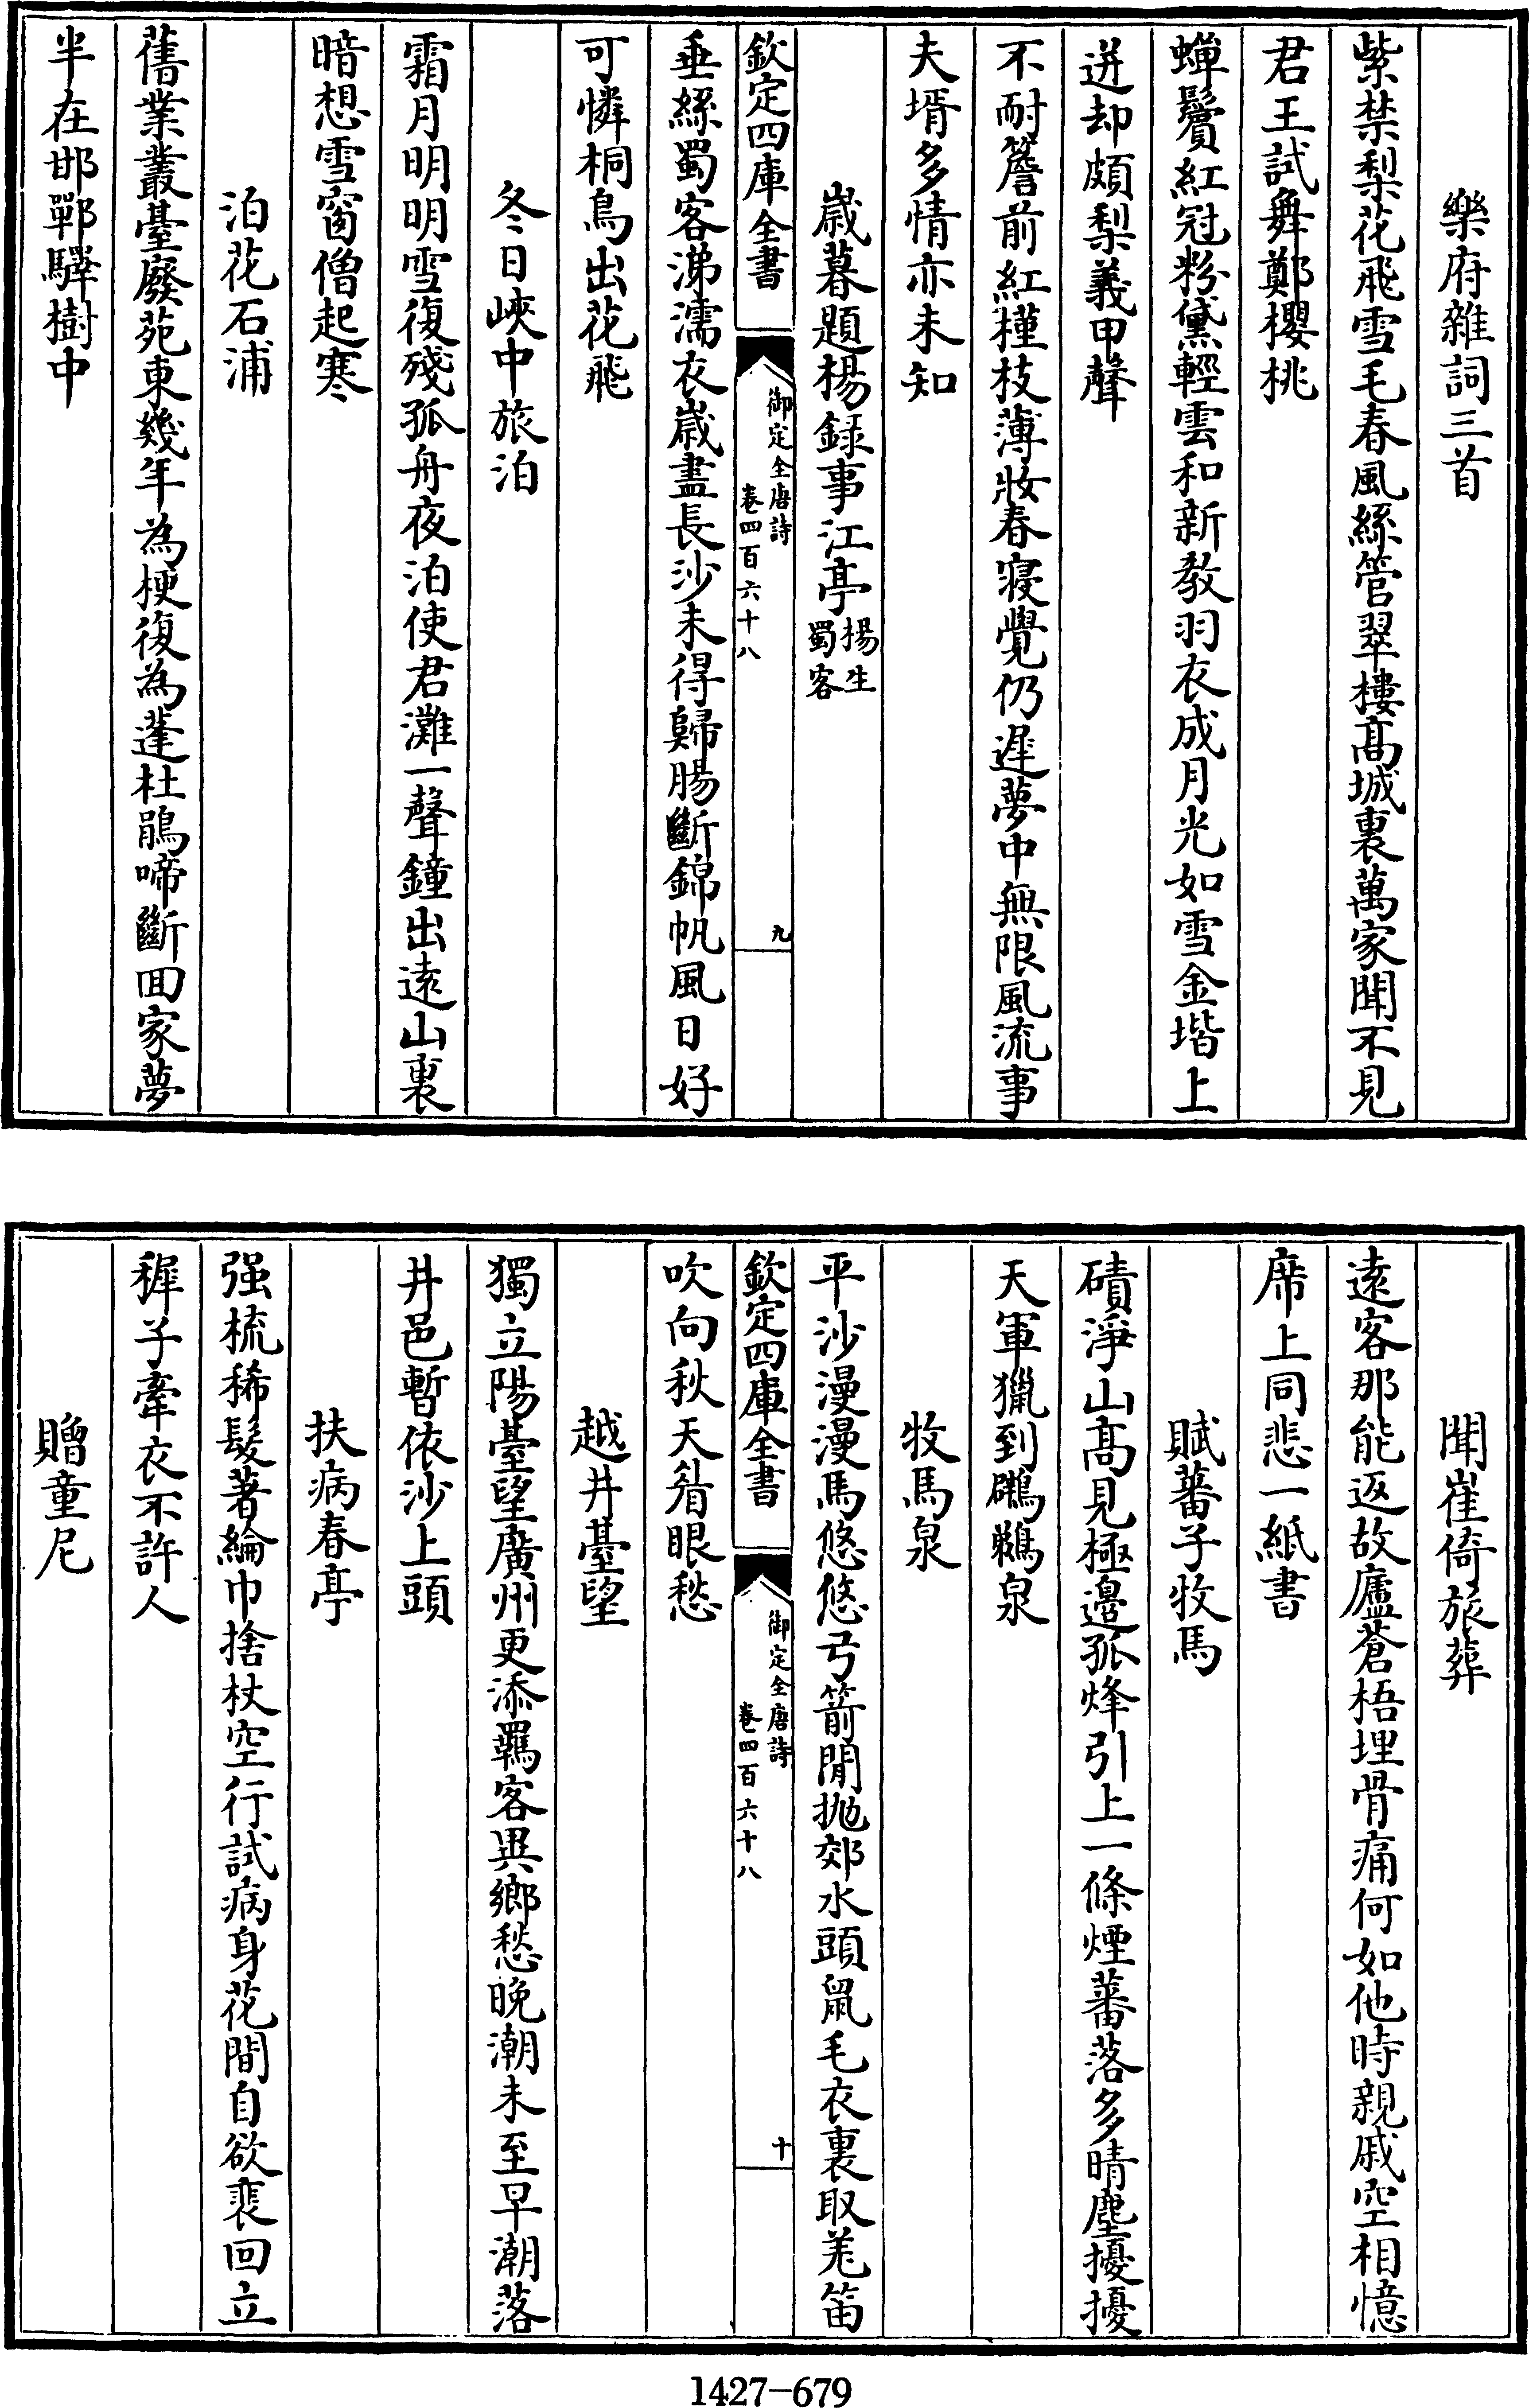 樂府雜詞三首
紫禁梨花飛雪毛春風絲管翠樓髙城裏萬家聞不見
君王試舞鄭櫻桃
蟬鬢紅冠粉黛輕雲和新教羽衣成月光如雪金堦上
迸却頗梨義甲聲
不耐簷前紅槿枝薄妝春寢覺仍遲夢中無限風流事
夫壻多情亦未知
歲暮題楊録事江亭楊生蜀客
欽定四庫全書
御定全唐詩
卷四百六十八
九
垂絲蜀客涕濡衣歲盡長沙未得歸腸斷錦帆風日好
可憐桐鳥出花飛
冬日峽中旅泊
霜月明明雪復殘孤舟夜泊使君灘一聲鐘出逺山裏
暗想雪窗僧起寒
泊花石浦
舊業叢臺廢苑東幾年為梗復為蓬杜鵑啼斷回家夢
半在邯鄲驛樹中
聞崔倚旅葬
逺客那能返故廬蒼梧埋骨痛何如他時親戚空相憶
席上同悲一紙書
賦蕃子牧馬
磧淨山髙見極邉孤烽引上一條煙蕃落多晴塵擾擾
天軍獵到鸊鵜泉
牧馬泉
平沙漫漫馬悠悠弓箭閒抛郊水頭鼠毛衣裏取羌笛
欽定四庫全書
御定全唐詩
卷四百六十八
十
吹向秋天眉眼愁
越井臺望
獨立陽臺望廣州更添羇客異鄉愁晚潮未至早潮落
井邑暫依沙上頭
扶病春亭
强梳稀髮著綸巾捨杖空行試病身花間自欲裴回立
穉子牽衣不許人
贈童尼
1427-679